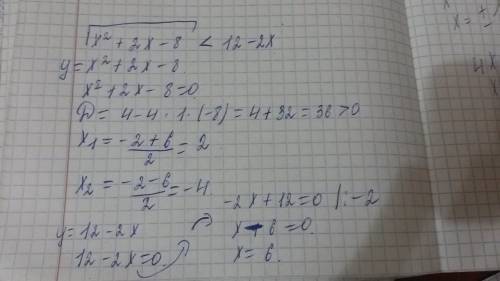 √x² + 2x - 8 < 12 - 2x
y = x² + 2x - 8
x² + 2x - 8 = 0
D = 4 - 4 · 1 · (-8) = 4 + 32 = 36 > 0
x₁ = -2 + 6 / 2 = 2
x₂ = -2 - 6 / 2 = -4
y = 12 - 2x
12 - 2x = 0
-2x + 12 = 0 | : -2
x - 6 = 0.
x = 6.
x =
4x